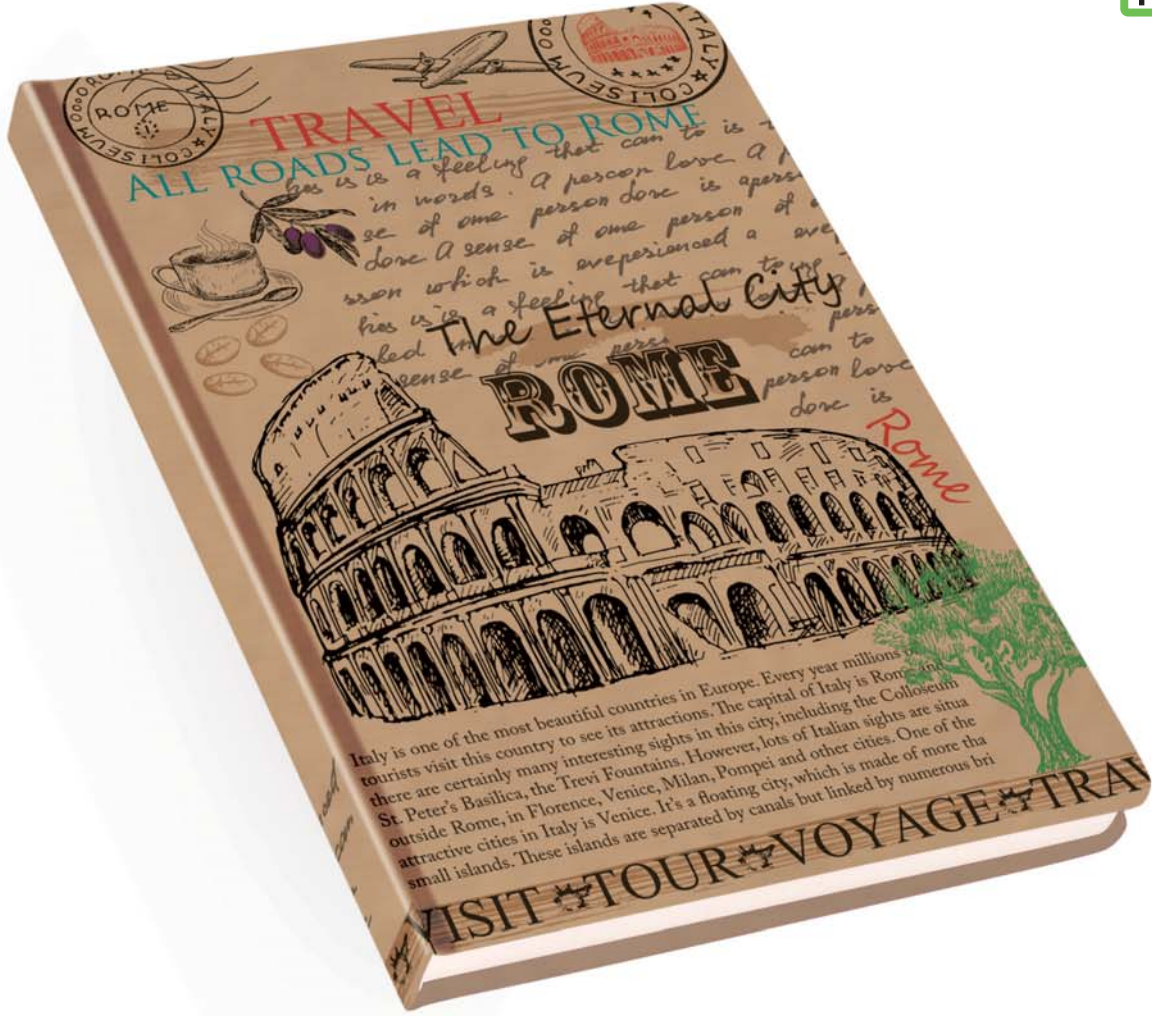 ROME
ITALY
COLISEUM
ITALY
COLISEUM
TRAVEL
ALL ROADS LEAD TO ROME
is is a feeling that can to is
in words. A person love a
se of ome person dose is apers
dose A sense of ome person of
sson which is eveperienced a eve
hies is is a feeling that can to
The Eternal City
sense of ome perss
pers
ROME
can to
person love
dose is
Rome
Italy is one of the most beautiful countries in Europe. Every year millions
tourists visit this country to see its attractions. The capital of Italy is Rome
there are certainly many interesting sights in this city, including the Colloseum
St. Peter's Basilica, the Trevi Fountains. However, lots of Italian sights are situa
outside Rome, in Florence, Venice, Milan, Pompei and other cities. One of the
attractive cities in Italy is Venice. It's a floating city, which is made of more tha
small islands. These islands are separated by canals but linked by numerous bri
VISIT TOUR VOYAGE TRAV